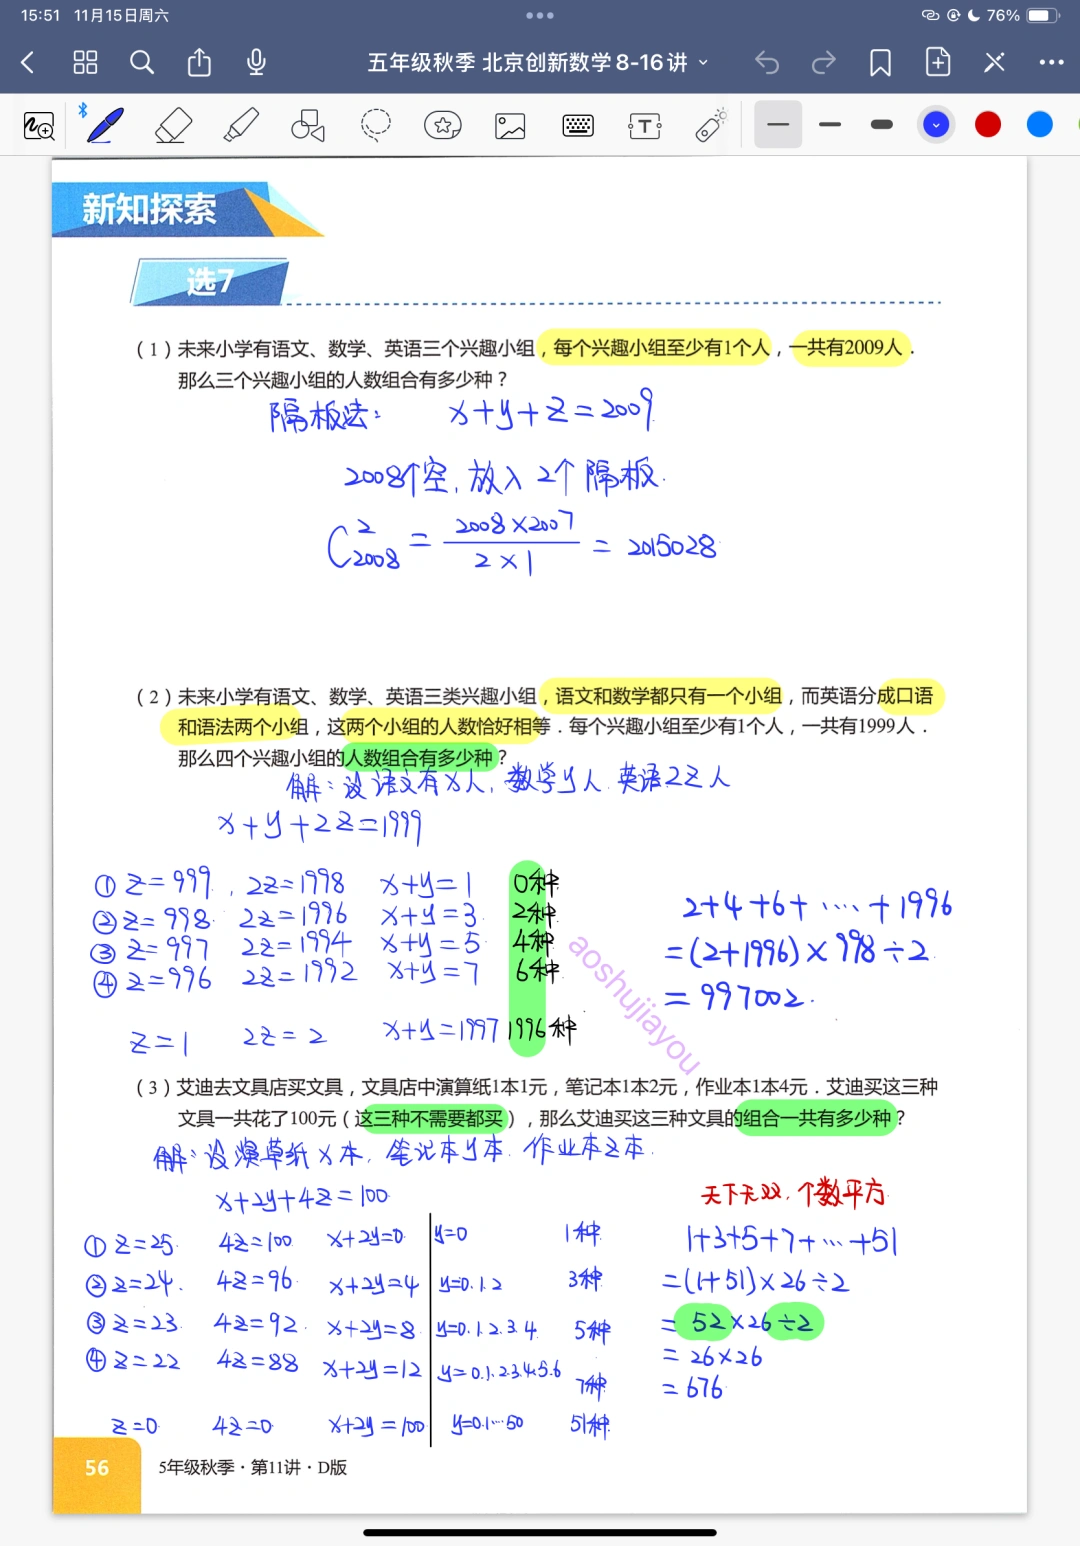 15:51 11月15日周六
76%
五年级秋季 北京创新数学8-16讲
新知探索
选7
（1）未来小学有语文、数学、英语三个兴趣小组，每个兴趣小组至少有1个人，一共有2009人．
那么三个兴趣小组的人数组合有多少种？
隔板法： x+y+z=2009
2008个空，放入2个隔板.
C²₂₀₀₈ = 2008×2007 / 2×1 = 2015028
（2）未来小学有语文、数学、英语三类兴趣小组，语文和数学都只有一个小组，而英语分成口语
和语法两个小组，这两个小组的人数恰好相等．每个兴趣小组至少有1个人，一共有1999人．
那么四个兴趣小组的人数组合有多少种？
解：设语文有x人，数学y人 英语2z人
x+y+2z=1999
① z=999, 2z=1998 x+y=1 0种
② z=998 2z=1996 x+y=3 2种
③ z=997 2z=1994 x+y=5 4种
④ z=996 2z=1992 x+y=7 6种
z=1 2z=2 x+y=1997 1996种
2+4+6+…+1996
=(2+1996)×998÷2
=997002.
aoshujiayou
（3）艾迪去文具店买文具，文具店中演算纸1本1元，笔记本1本2元，作业本1本4元．艾迪买这三种
文具一共花了100元（这三种不需要都买），那么艾迪买这三种文具的组合一共有多少种？
解：设演草纸x本，笔记本y本 作业本z本.
x+2y+4z=100
① z=25 4z=100 x+2y=0 y=0 1种
② z=24. 4z=96 x+2y=4 y=0.1.2 3种
③ z=23 4z=92 x+2y=8 y=0.1.2.3.4 5种
④ z=22 4z=88 x+2y=12 y=0.1.2.3.4.5.6 7种
z=0 4z=0 x+2y=100 y=0.1…50 51种
天下无双，个数平方
1+3+5+7+…+51
=(1+51)×26÷2
=52×26÷2
=26×26
=676
56
5年级秋季·第11讲·D版